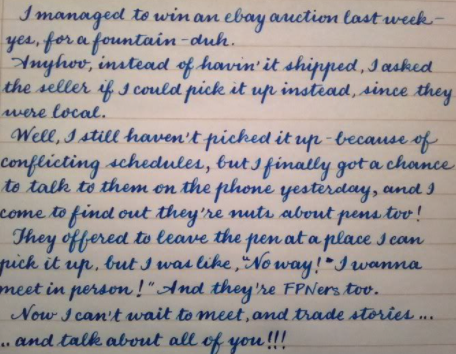 I managed to win an ebay auction last week-
yes, for a fountain-duh.
Anyhoo, instead of havin' it shipped, I asked
the seller if I could pick it up instead, since they
were local.
Well, I still haven't picked it up-because of
conflicting schedules, but I finally got a chance
to talk to them on the phone yesterday, and I
come to find out they're nuts about pens too!
They offered to leave the pen at a place I can
pick it up, but I was like, "No way!" I wanna
meet in person!" And they're FPNers too.
Now I can't wait to meet, and trade stories ...
.. and talk about all of you!!!